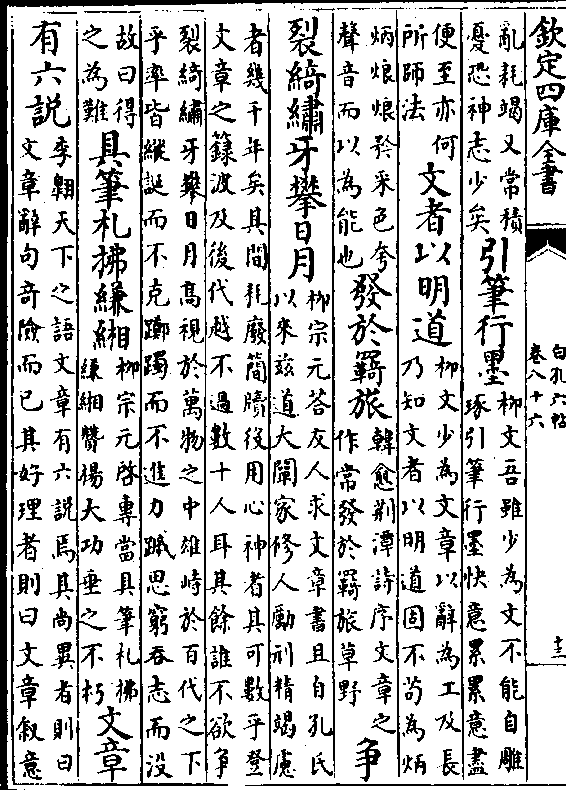 欽定四庫全書
白孔六帖
卷八十六
十三
亂耗竭又常積
憂恐神志少矣
引筆行墨
柳文吾雖少為文不能自雕
琢引筆行墨快意累累意盡
便至亦何
所師法
文者以明道
柳文少為文章以辭為工及長
乃知文者以明道固不苟為炳
炳烺烺務采色夸
聲音而以為能也
發於羇旅
韓愈荆潭詩序文章之
作常發於羇旅草野
爭
裂綺繡牙攀日月
柳宗元答友人求文章書且自孔氏
以來兹道大闡家修人勵刓精竭慮
者幾千年矣其間耗廢簡牘役用心神者其可數乎登
文章之籙波及後代越不過數十人耳其餘誰不欲爭
裂綺繡牙攀日月高視於萬物之中雄峙於百代之下
乎率皆縱誕而不克躑躅而不進力蹙思窮吞志而没
故曰得
之為難
具筆札拂縑緗
柳宗元啓專當具筆札拂
縑緗贊揚大功垂之不朽
文章
有六説
李翺天下之語文章有六説焉其尚異者則曰
文章辭句奇險而已其好理者則曰文章叙意